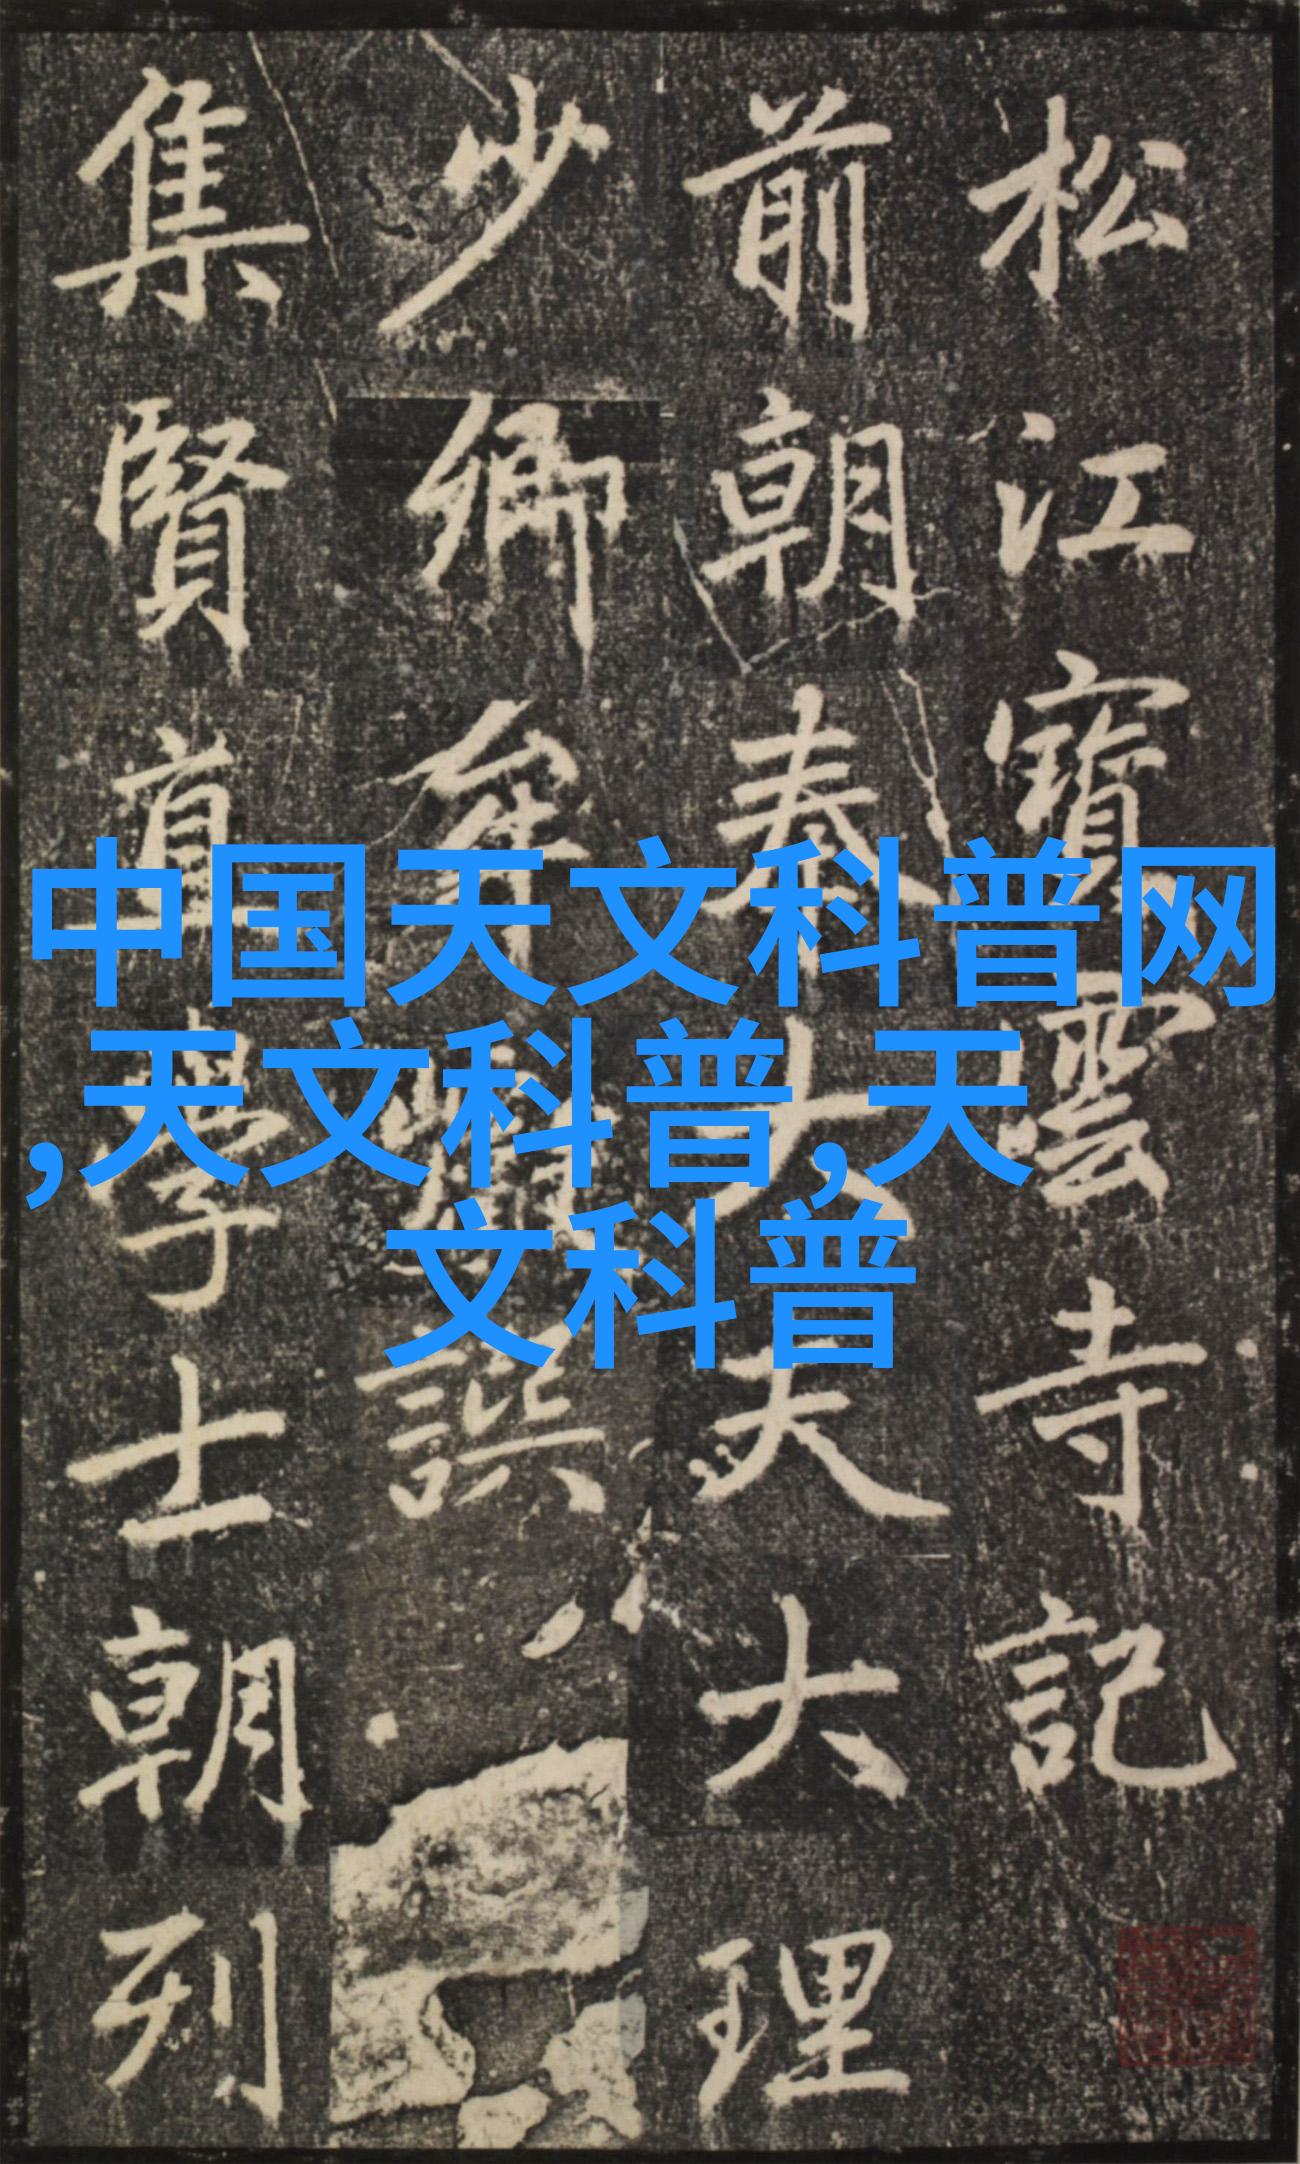 松江寶雲寺記
前朝奉大夫大理
少卿牟譔
集賢直學士朝列
中国天文科普网
,天文科普,天
文科普